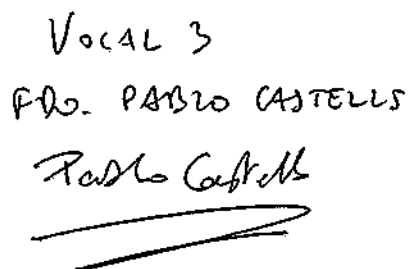 VOCAL 3
FDO. PABLO CASTELLS
Pablo Castells